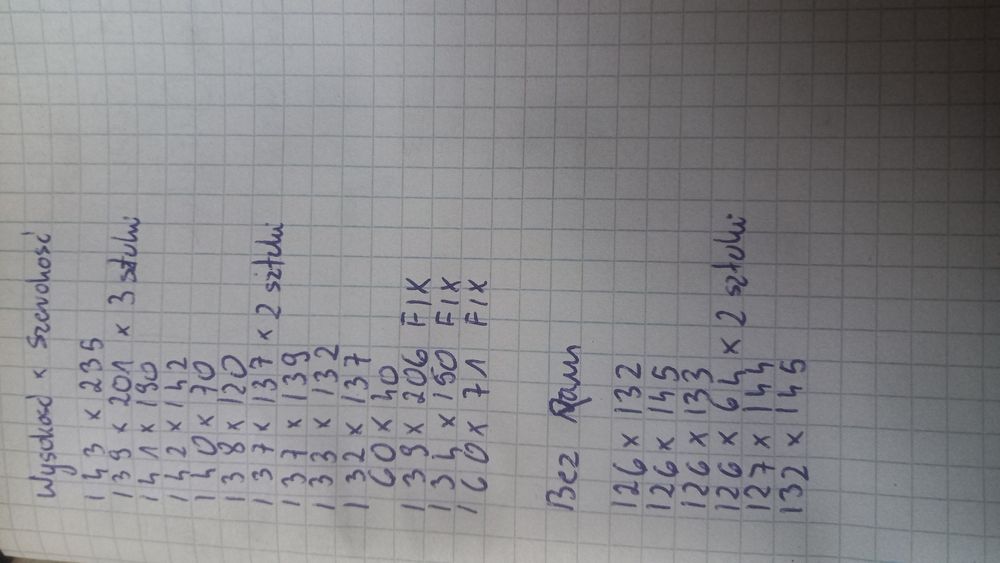 Wysokość x Szerokość
143 x 235
139 x 201 x 3 sztuki
141 x 190
142 x 142
140 x 70
138 x 120
137 x 137 x 2 sztuki
137 x 139
133 x 132
132 x 137
60 x 40
139 x 206 FIX
134 x 150 FIX
160 x 71 FIX
Bez Ramy
126 x 132
126 x 145
126 x 133
126 x 64 x 2 sztuki
127 x 144
132 x 145